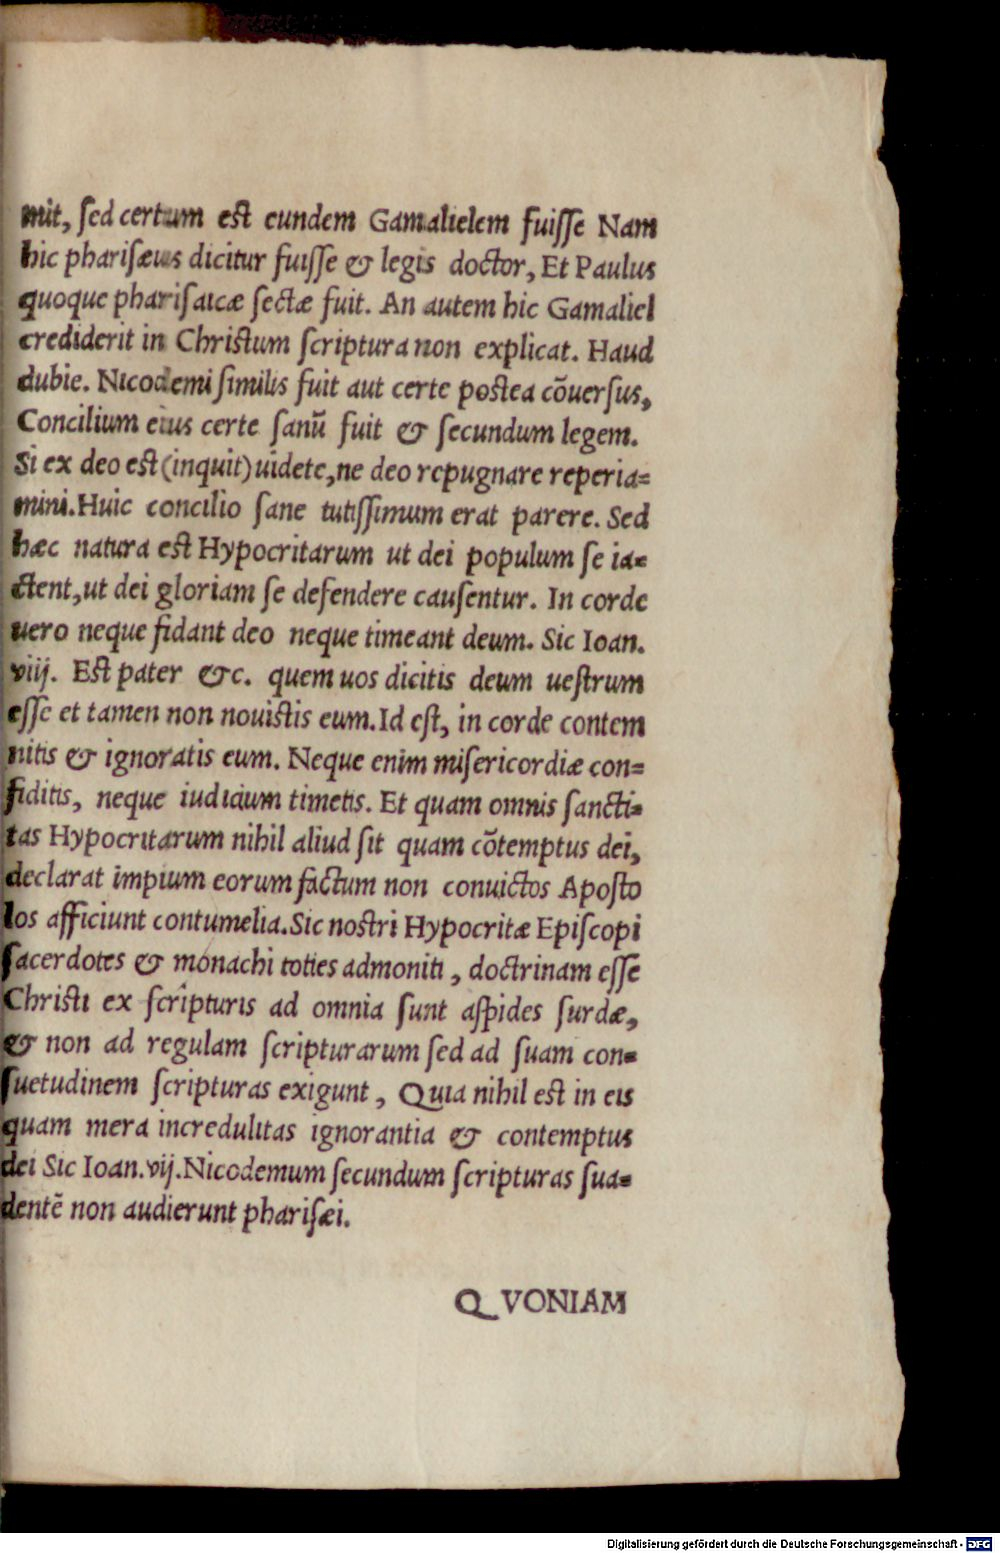 mit, sed certum est eundem Gamalielem fuisse Nam
hic pharisæus dicitur fuisse & legis doctor, Et Paulus
quoque pharisaicæ sectæ fuit. An autem hic Gamaliel
crediderit in Christum scriptura non explicat. Haud
dubie. Nicodemi similis fuit aut certe postea cōuersus,
Concilium eius certe sanū fuit & secundum legem.
Si ex deo est (inquit) uidete, ne deo repugnare reperia=
mini. Huic concilio sane tutissimum erat parere. Sed
hæc natura est Hypocritarum ut dei populum se ia=
ctent, ut dei gloriam se defendere causentur. In corde
uero neque fidant deo neque timeant deum. Sic Ioan.
viij. Est pater &c. quem uos dicitis deum uestrum
esse et tamen non nouistis eum. Id est, in corde contem
nitis & ignoratis eum. Neque enim misericordiæ con=
fiditis, neque iudicium timetis. Et quam omnis sancti=
tas Hypocritarum nihil aliud sit quam cōtemptus dei,
declarat impium eorum factum non conuictos Aposto
los afficiunt contumelia. Sic nostri Hypocritæ Episcopi
sacerdotes & monachi toties admoniti, doctrinam esse
Christi ex scripturis ad omnia sunt aspides surdæ,
& non ad regulam scripturarum sed ad suam con=
suetudinem scripturas exigunt, Quia nihil est in eis
quam mera incredulitas ignorantia & contemptus
dei Sic Ioan. vij. Nicodemum secundum scripturas sua=
dentē non audierunt pharisæi.
QVONIAM
Digitalisierung gefördert durch die Deutsche Forschungsgemeinschaft - DFG